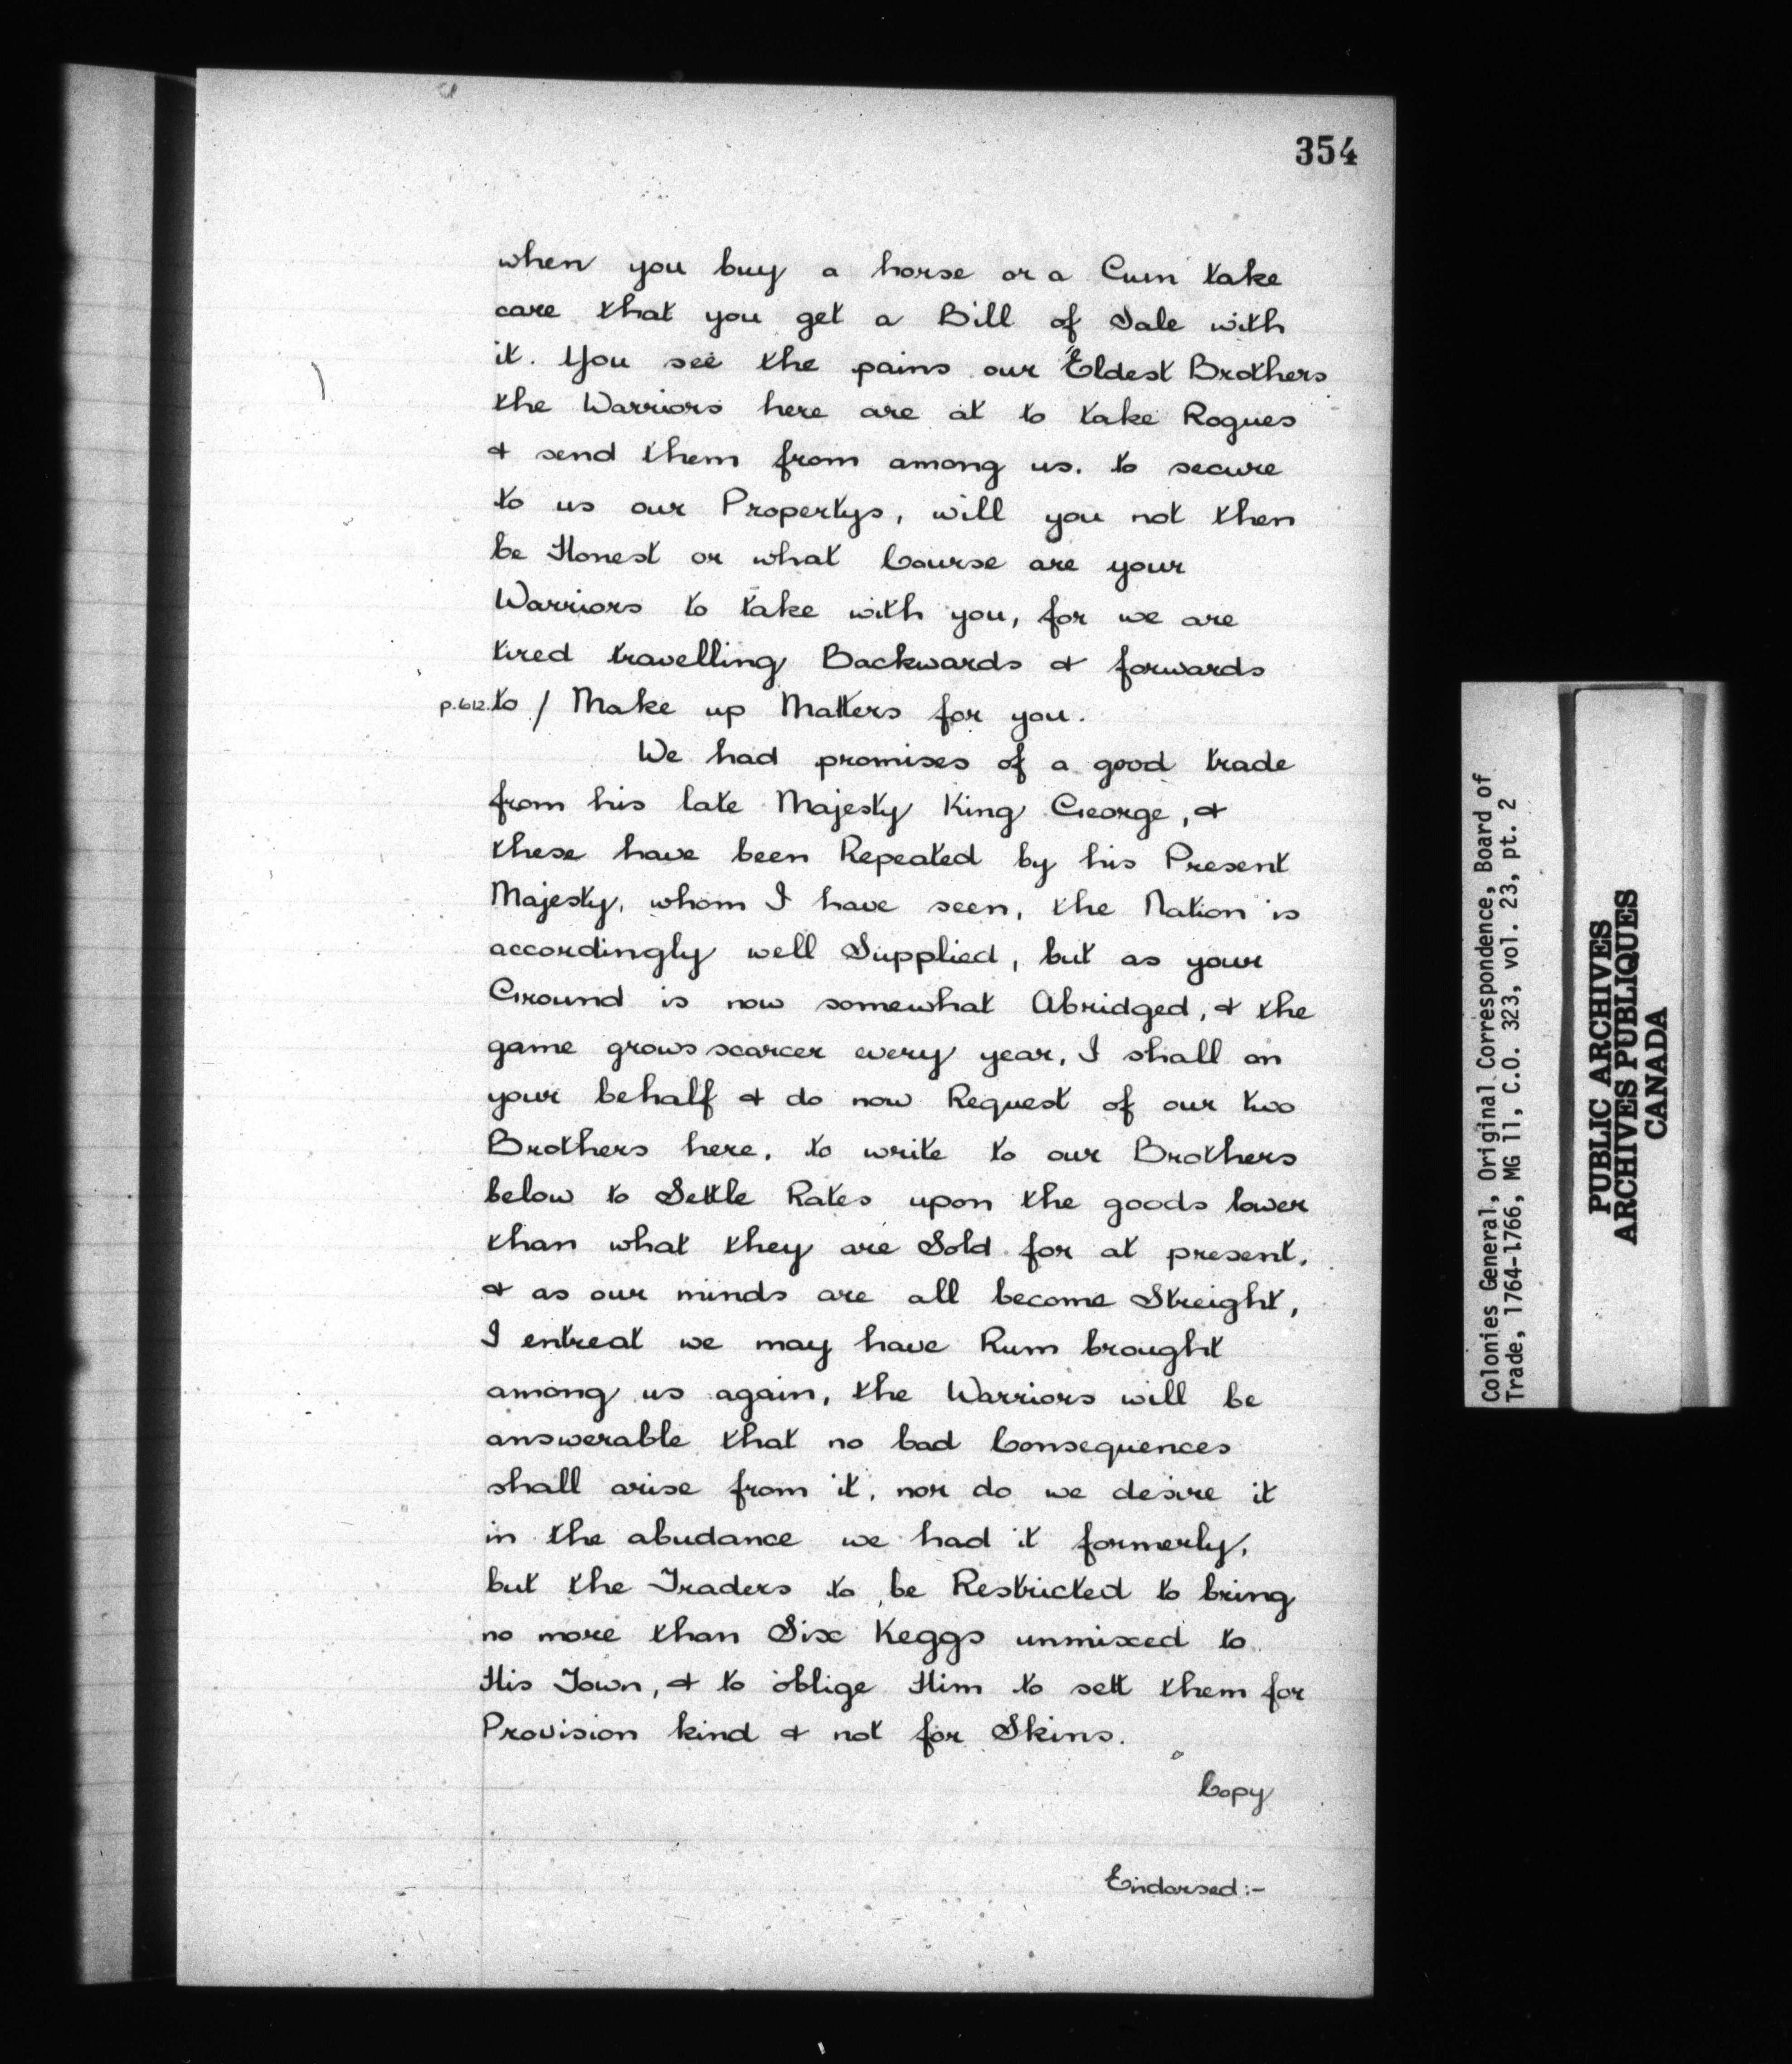 354
when you buy a horse or a Gun take
care that you get a Bill of Sale with
it. You see the pains our Eldest Brothers
the Warriors here are at to take Rogues
& send them from among us. to secure
to us our Propertys, will you not then
be Honest or what Course are your
Warriors to take with you, for we are
tired travelling Backwards & forwards
p.612. to / Make up Matters for you.
We had promises of a good trade
from his late Majesty King George, &
these have been Repeated by his Present
Majesty, whom I have seen, the Nation is
accordingly well Supplied, but as your
Ground is now somewhat Abridged, & the
game grows scarcer every year, I shall on
your behalf & do now Request of our two
Brothers here, to write to our Brothers
below to Settle Rates upon the goods lower
than what they are Sold for at present,
& as our minds are all become Streight,
I entreat we may have Rum brought
among us again, the Warriors will be
answerable that no bad Consequences
shall arise from it, nor do we desire it
in the abudance we had it formerly,
but the Traders to be Restricted to bring
no more than Six Keggs unmixed to
His Town, & to oblige Him to sett them for
Provision kind & not for Skins.
Copy
Endorsed:-
Colonies General, Original Correspondence, Board of
Trade, 1764-1766, MG 11, C.O. 323, vol. 23, pt. 2
PUBLIC ARCHIVES
ARCHIVES PUBLIQUES
CANADA